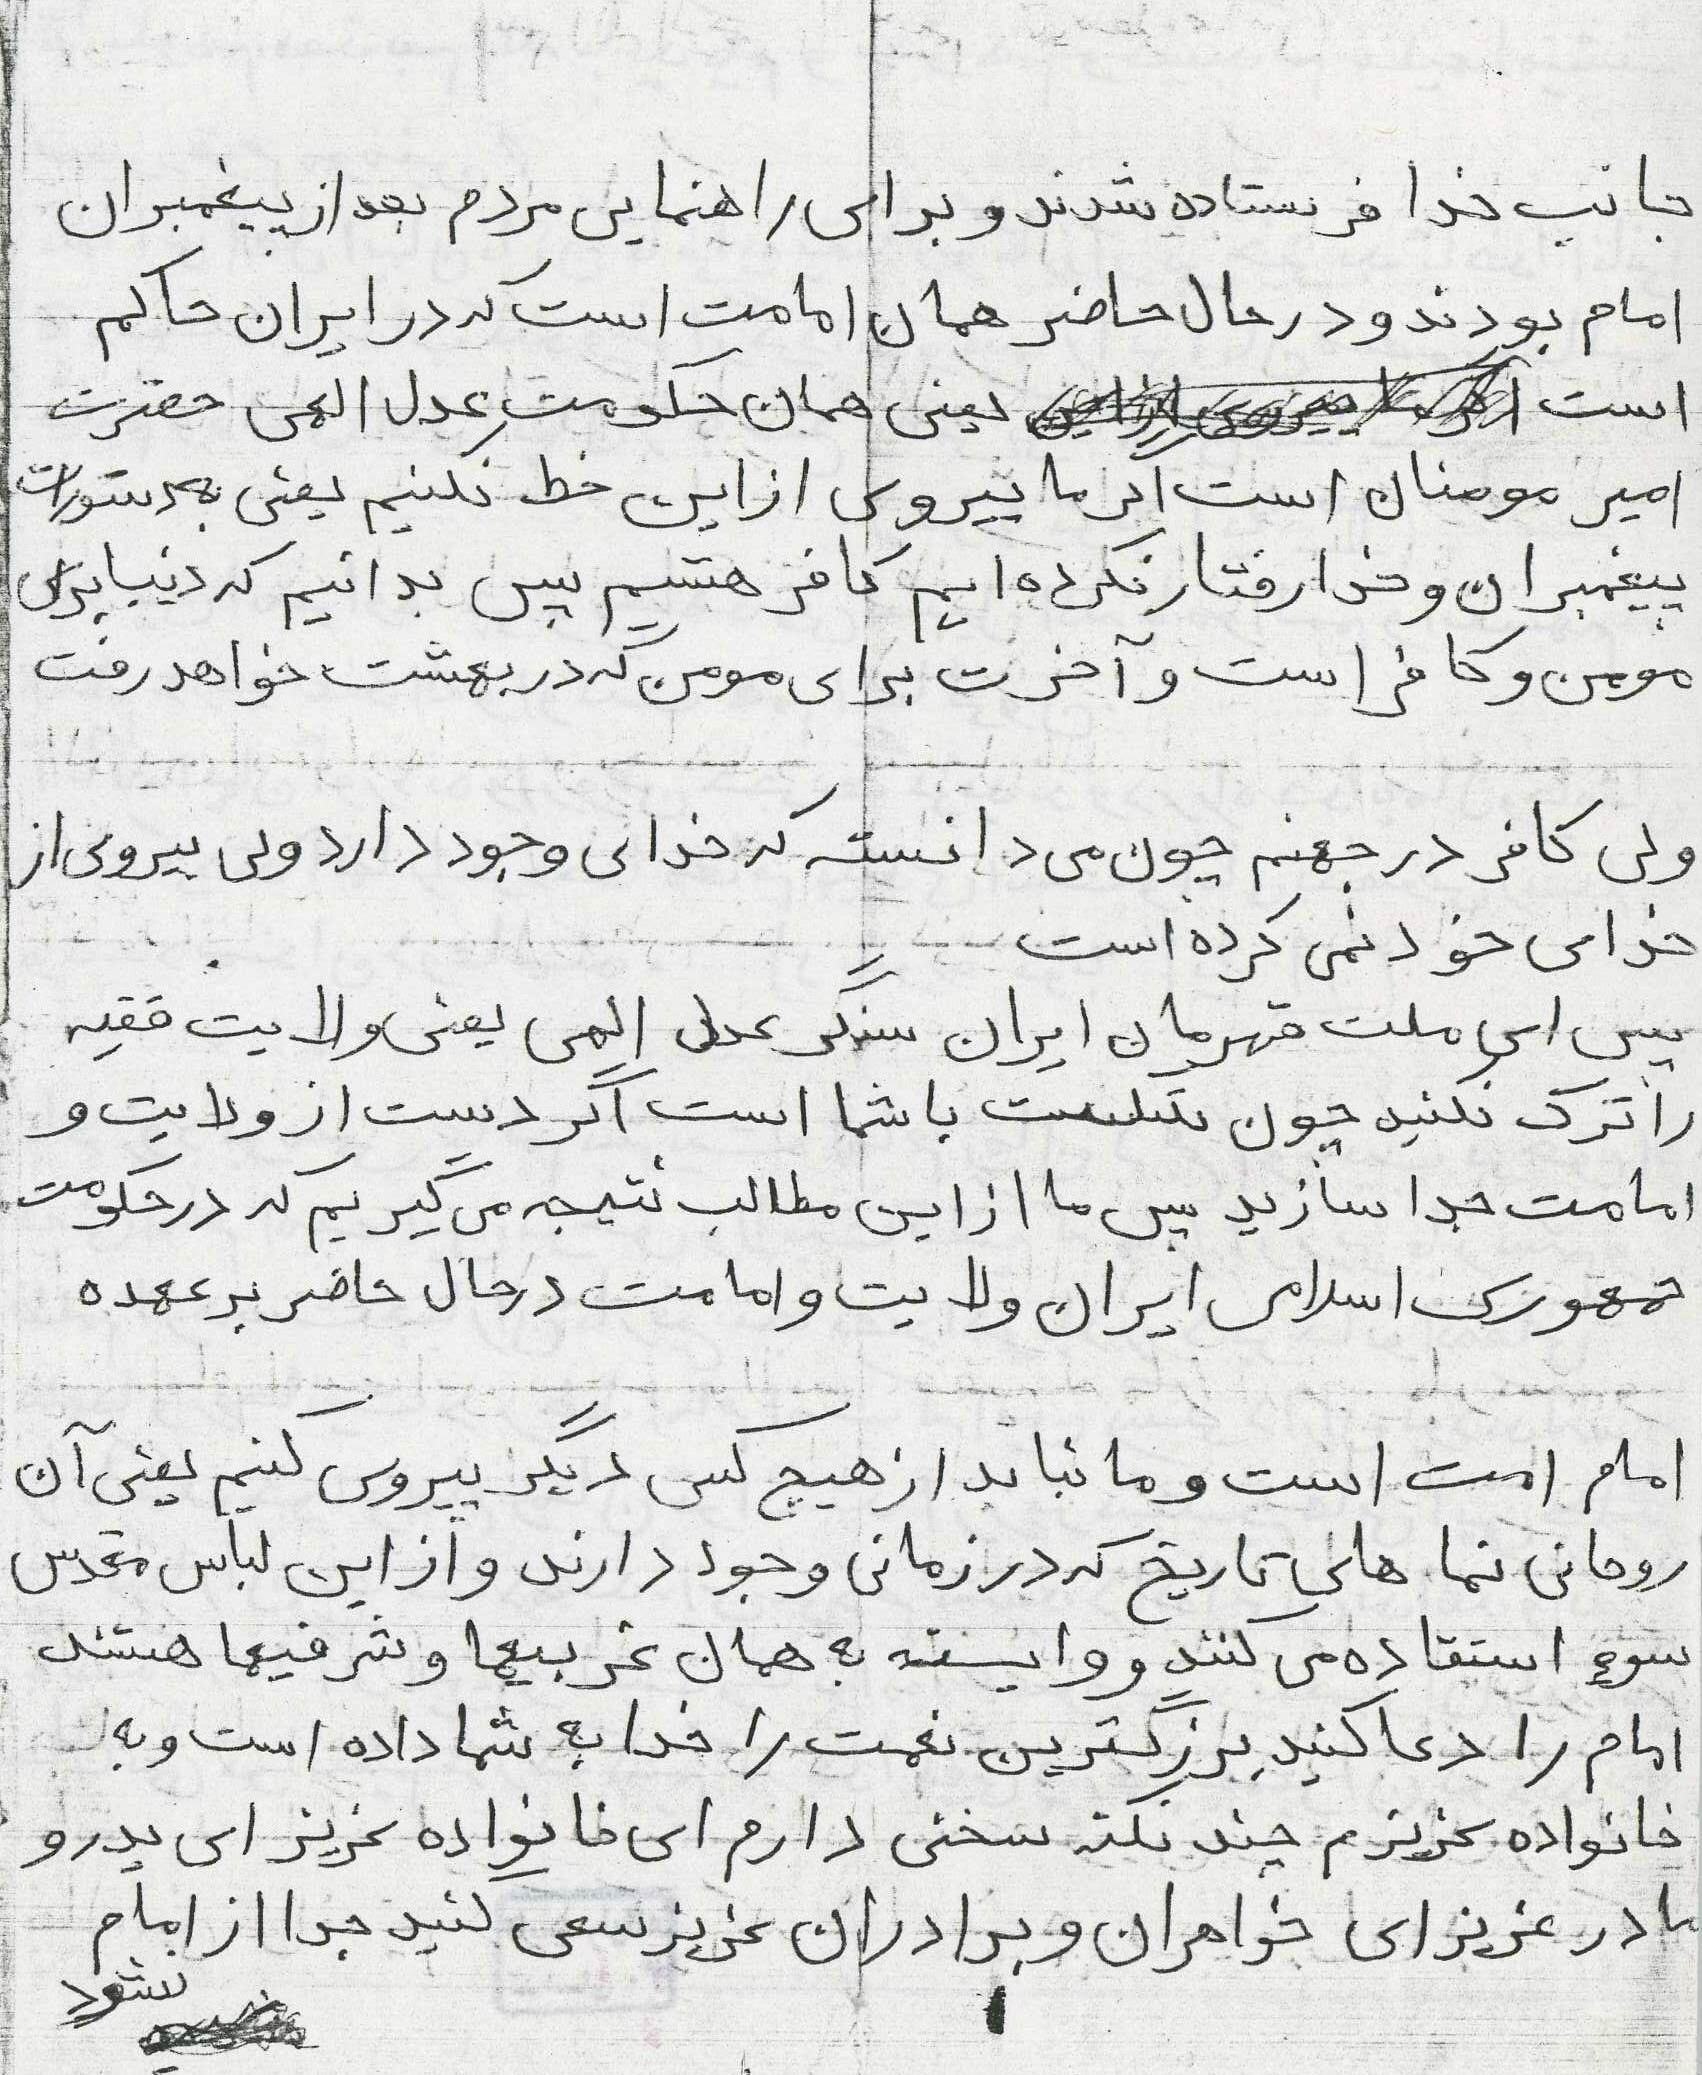 جانب خدا فرستاده شدند و برای راهنمایی مردم بعد از پیغمبران
امام بودند و در حال حاضر همان امامت است که در ایران حاکم
است اگر ما پیروی از این یعنی همان حکومت عدل الهی حضرت
امیر مومنان است اگر ما پیروی از این خط نکنیم یعنی به دستورات
پیغمبران و خدا رفتار نکرده ایم کافر هستیم پس بدانیم که دنیا برای
مومن و کافر است و آخرت برای مومن که در بهشت خواهد رفت
ولی کافر در جهنم چون می دانسته که خدای وجود دارد ولی پیروی از
خدای خود نمی کرده است
پس ای ملت قهرمان ایران سنگر عدل الهی یعنی ولایت فقیه
را ترک نکنید چون شکست با شما است اگر دست از ولایت و
امامت جدا سازید پس ما از این مطالب نتیجه می گیریم که در حکومت
جمهوری اسلامی ایران ولایت و امامت در حال حاضر بر عهده
امام امت است و ما نباید از هیچ کسی دیگر پیروی کنیم یعنی آن
روحانی نما های تاریخ که در زمانی وجود دارند و از این لباس مقدس
سوء استفاده می کنند و وابسته به همان غربیها و شرقیها هستند
امام را دعا کنید بزرگترین نعمت را خدا به شما داده است و به
خانواده عزیزم چند نکته سخنی دارم ای خانواده عزیز ای پدر و
مادر عزیز ای خواهران و برادران عزیز سعی کنید جدا از امام
نشود